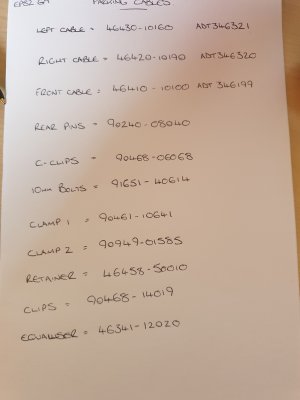 EP82 GA PARKING CABLES
LEFT CABLE = 46430-10160 ADT346321
RIGHT CABLE = 46420-10190 ADT346320
FRONT CABLE = 46410-10100 ADT 346199
REAR PINS = 90240-08040
C-CLIPS = 90468-06068
10mm BOLTS = 91651-40614
CLAMP 1 = 90461-10641
CLAMP 2 = 90949-01585
RETAINER = 46458-50010
CLIPS = 90468-14019
EQUALISER = 46341-12020